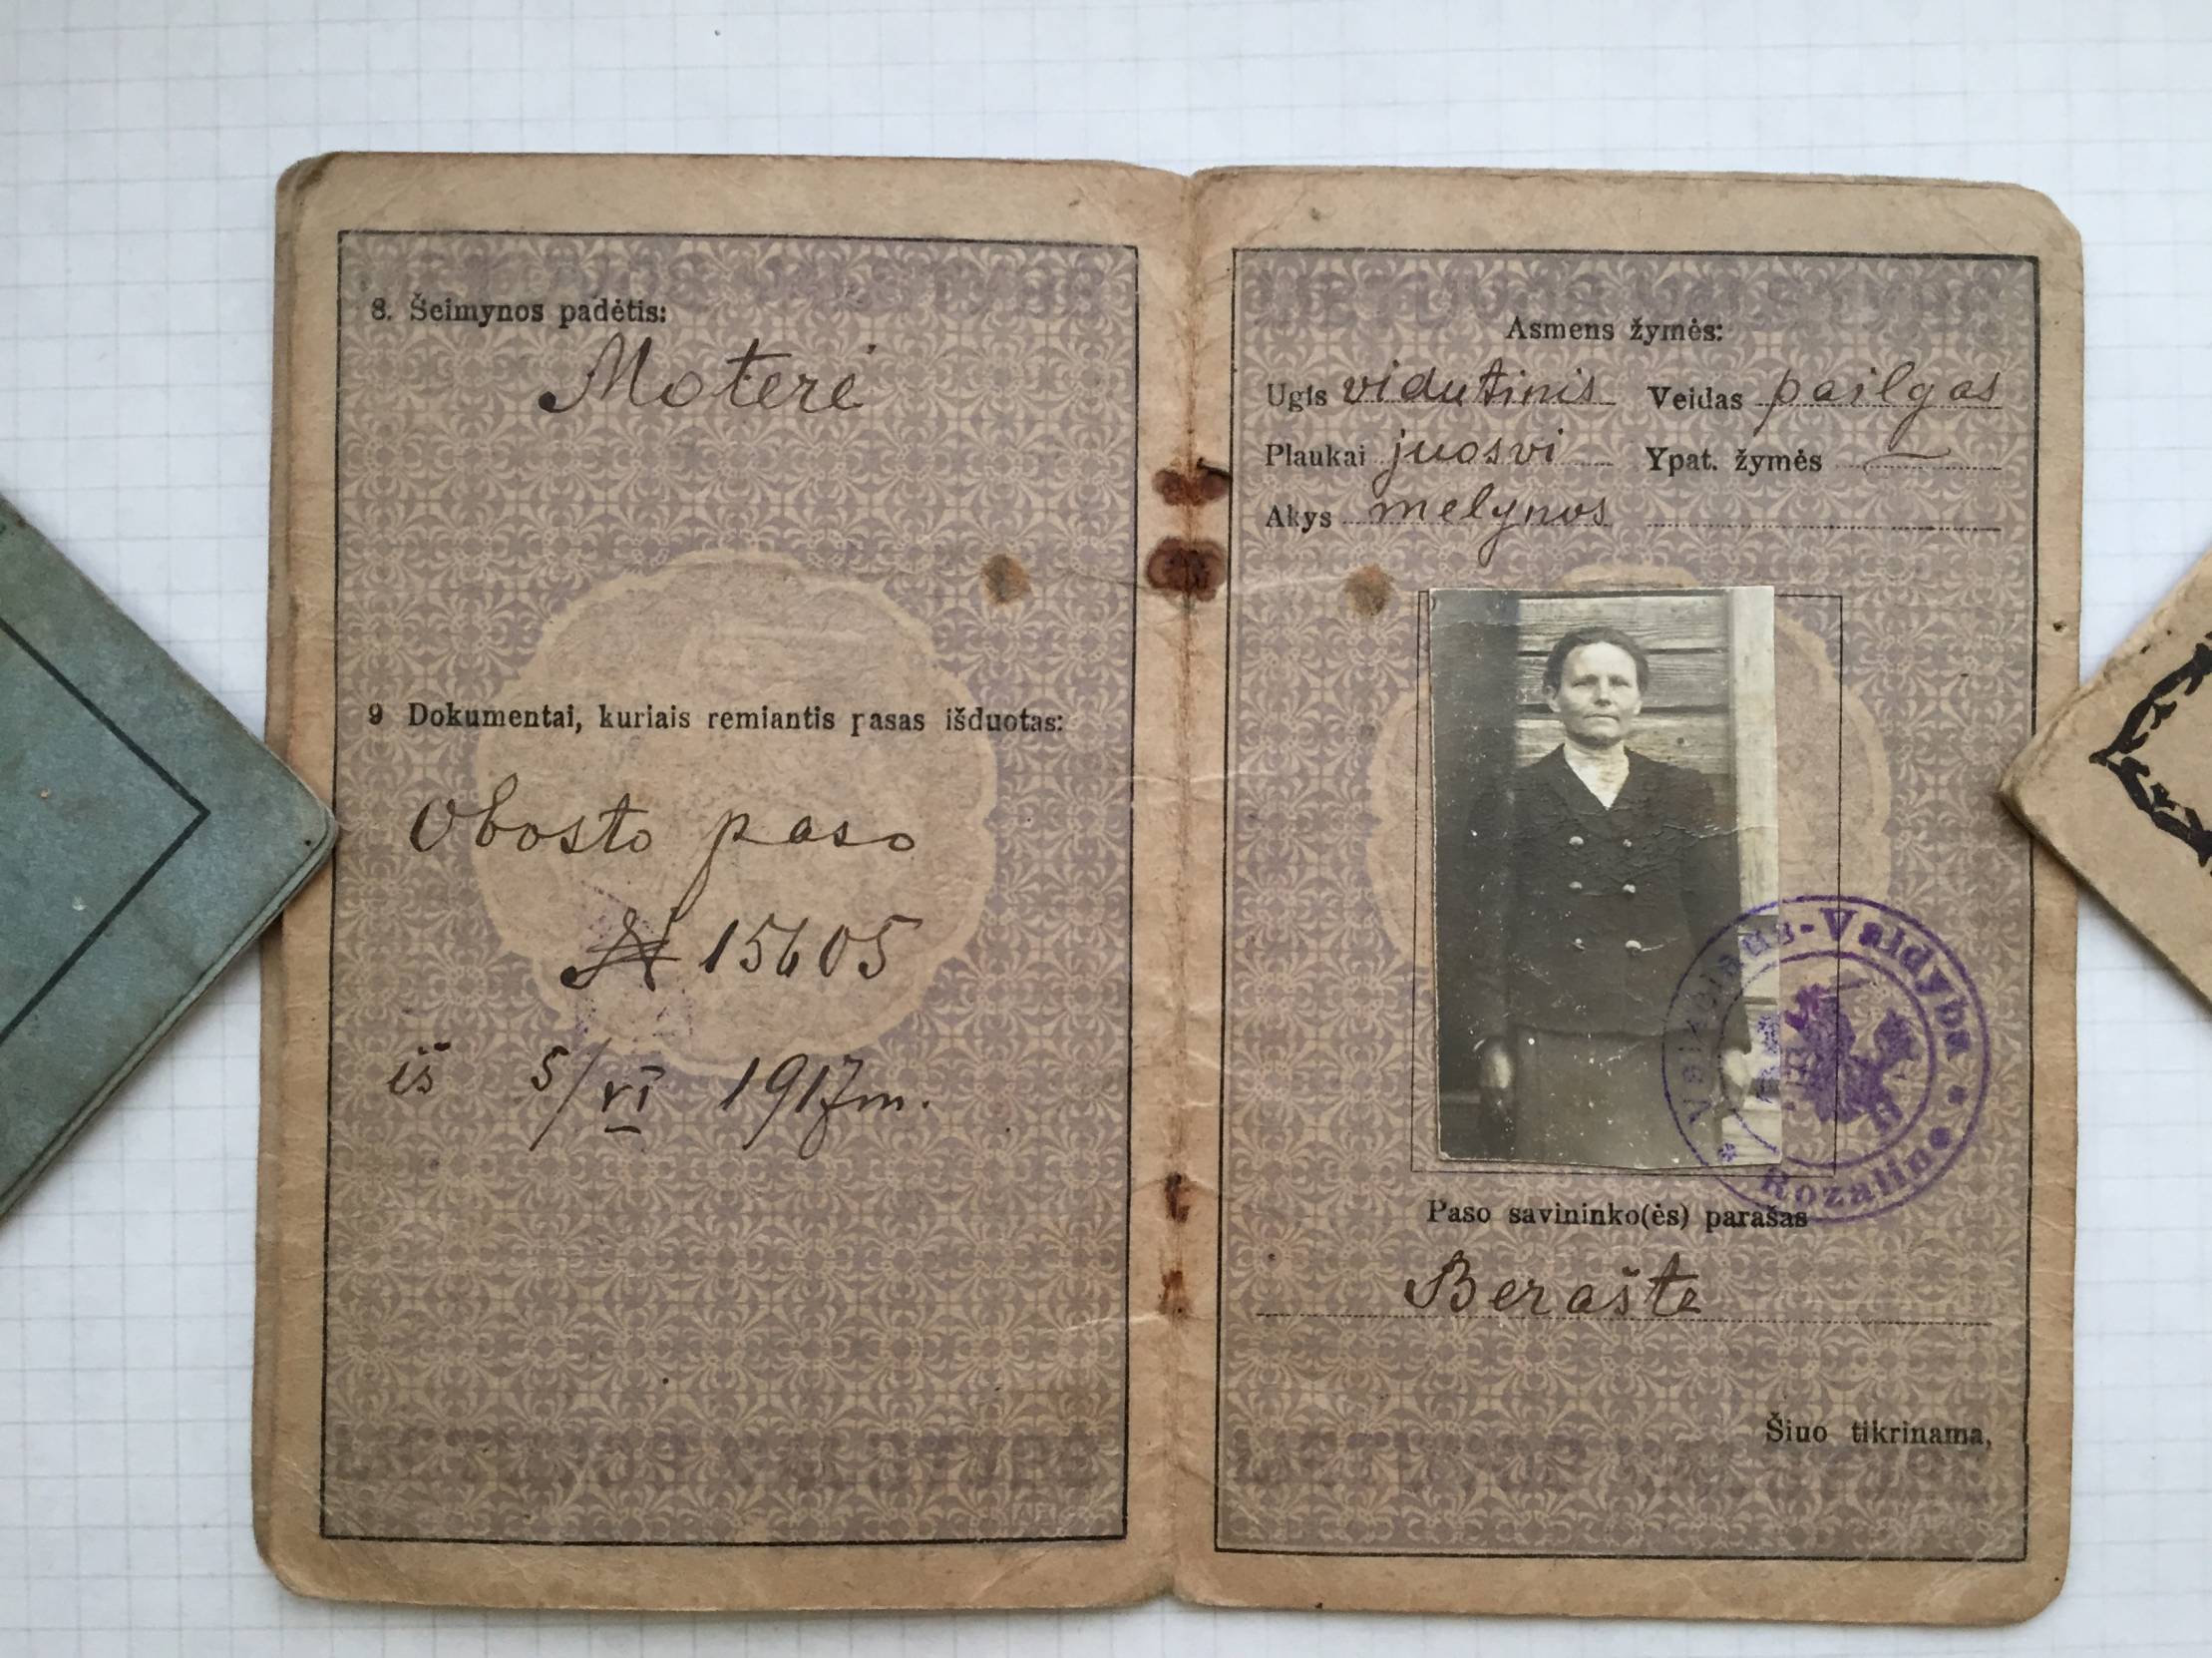 8. Šeimynos padėtis:
Moterė
9 Dokumentai, kuriais remiantis pasas išduotas:
Obosto paso
№ 15605
iš 5/VI 1917 m.
Asmens žymės:
Ugis vidutinis Veidas pailgas
Plaukai juosvi Ypat. žymės —
Akys melynos
Valsčiaus-Valdyba
Rozalino
Paso savininko(ės) parašas
Berašte
Šiuo tikrinama,